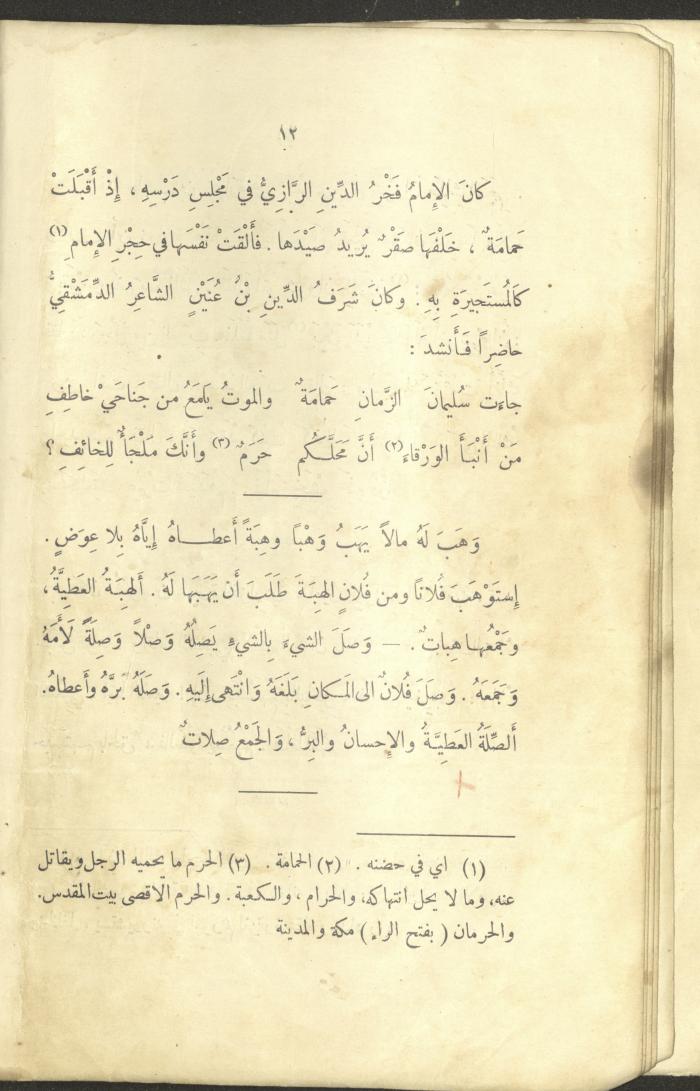 ١٢
كانَ الإِمامُ فَخْرُ الدِّينِ الرَّازِيُّ في مَجْلِسِ دَرْسِهِ ، إِذْ أَقْبَلَتْ
حَمامَةٌ ، خَلْفَها صَقْرٌ يُرِيدُ صَيْدَها . فأَلْقَتْ نَفْسَها في حِجْرِ الإِمامِ (١)
كَالْمُستَجيرَةِ بِهِ . وكانَ شَرَفُ الدِّينِ بْنُ عُنَيْنٍ الشَّاعِرُ الدِّمَشْقِيُّ
حاضِراً فَأَنشدَ :
جاءَت سُليمانَ الزَّمانِ حَمامَةٌ والموتُ يَلمَعُ من جَناحَيْ خاطِفِ
مَنْ أَنْبَأَ الوَرْقاءَ (٢) أَنَّ مَحَلَّكُم حَرَمٌ (٣) وأَنَّكَ مَلْجَأٌ لِلخائِفِ ؟
وَهَبَ لَهُ مالاً يَهَبُ وَهْباً وهِبَةً أَعطاهُ إِيَّاهُ بِلا عِوَضٍ .
إِستَوْهَبَ فُلاناً ومن فُلانٍ الهِبَةَ طَلَبَ أَن يَهَبَها لَهُ . أَلهِبَةُ العَطِيَّةُ ،
وجَمْعُها هِباتٌ . — وَصَلَ الشيءَ بِالشيءِ يَصِلُهُ وَصْلاً وَصِلَةً لَأَمَهُ
وَجَمَعَهُ . وَصَلَ فُلانٌ الى المَكانِ بَلَغَهُ وَانْتَهى إِلَيهِ . وَصَلَهُ بَرَّهُ وأَعطاهُ.
أَلصِّلَةُ العَطِيَّةُ والإِحسانُ والبِرُّ ، وَالجَمْعُ صِلاتٌ
(١) اي في حضنه . (٢) الحمامة . (٣) الحرم ما يحميه الرجل ويقاتل
عنه، وما لا يحل انتهاكه، والحرام ، والكعبة . والحرم الاقصى بيت المقدس.
والحرمان ( بفتح الراء ) مكة والمدينة